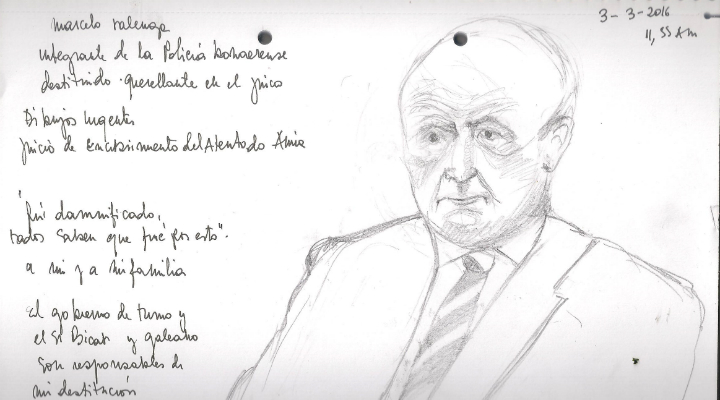 3-3-2016
11,55 Am
marcelo
integrante de la Policia bonaerense
destituido. querellante en el juico
Dibujos urgentes
juicio de Encubrimiento del Atentado Amia
"fui damnificado,
todos saben que fué por esto".
a mi y a mi familia
El gobierno de turno y
el Sr Bicat y galeano
son responsables de
mi destitución